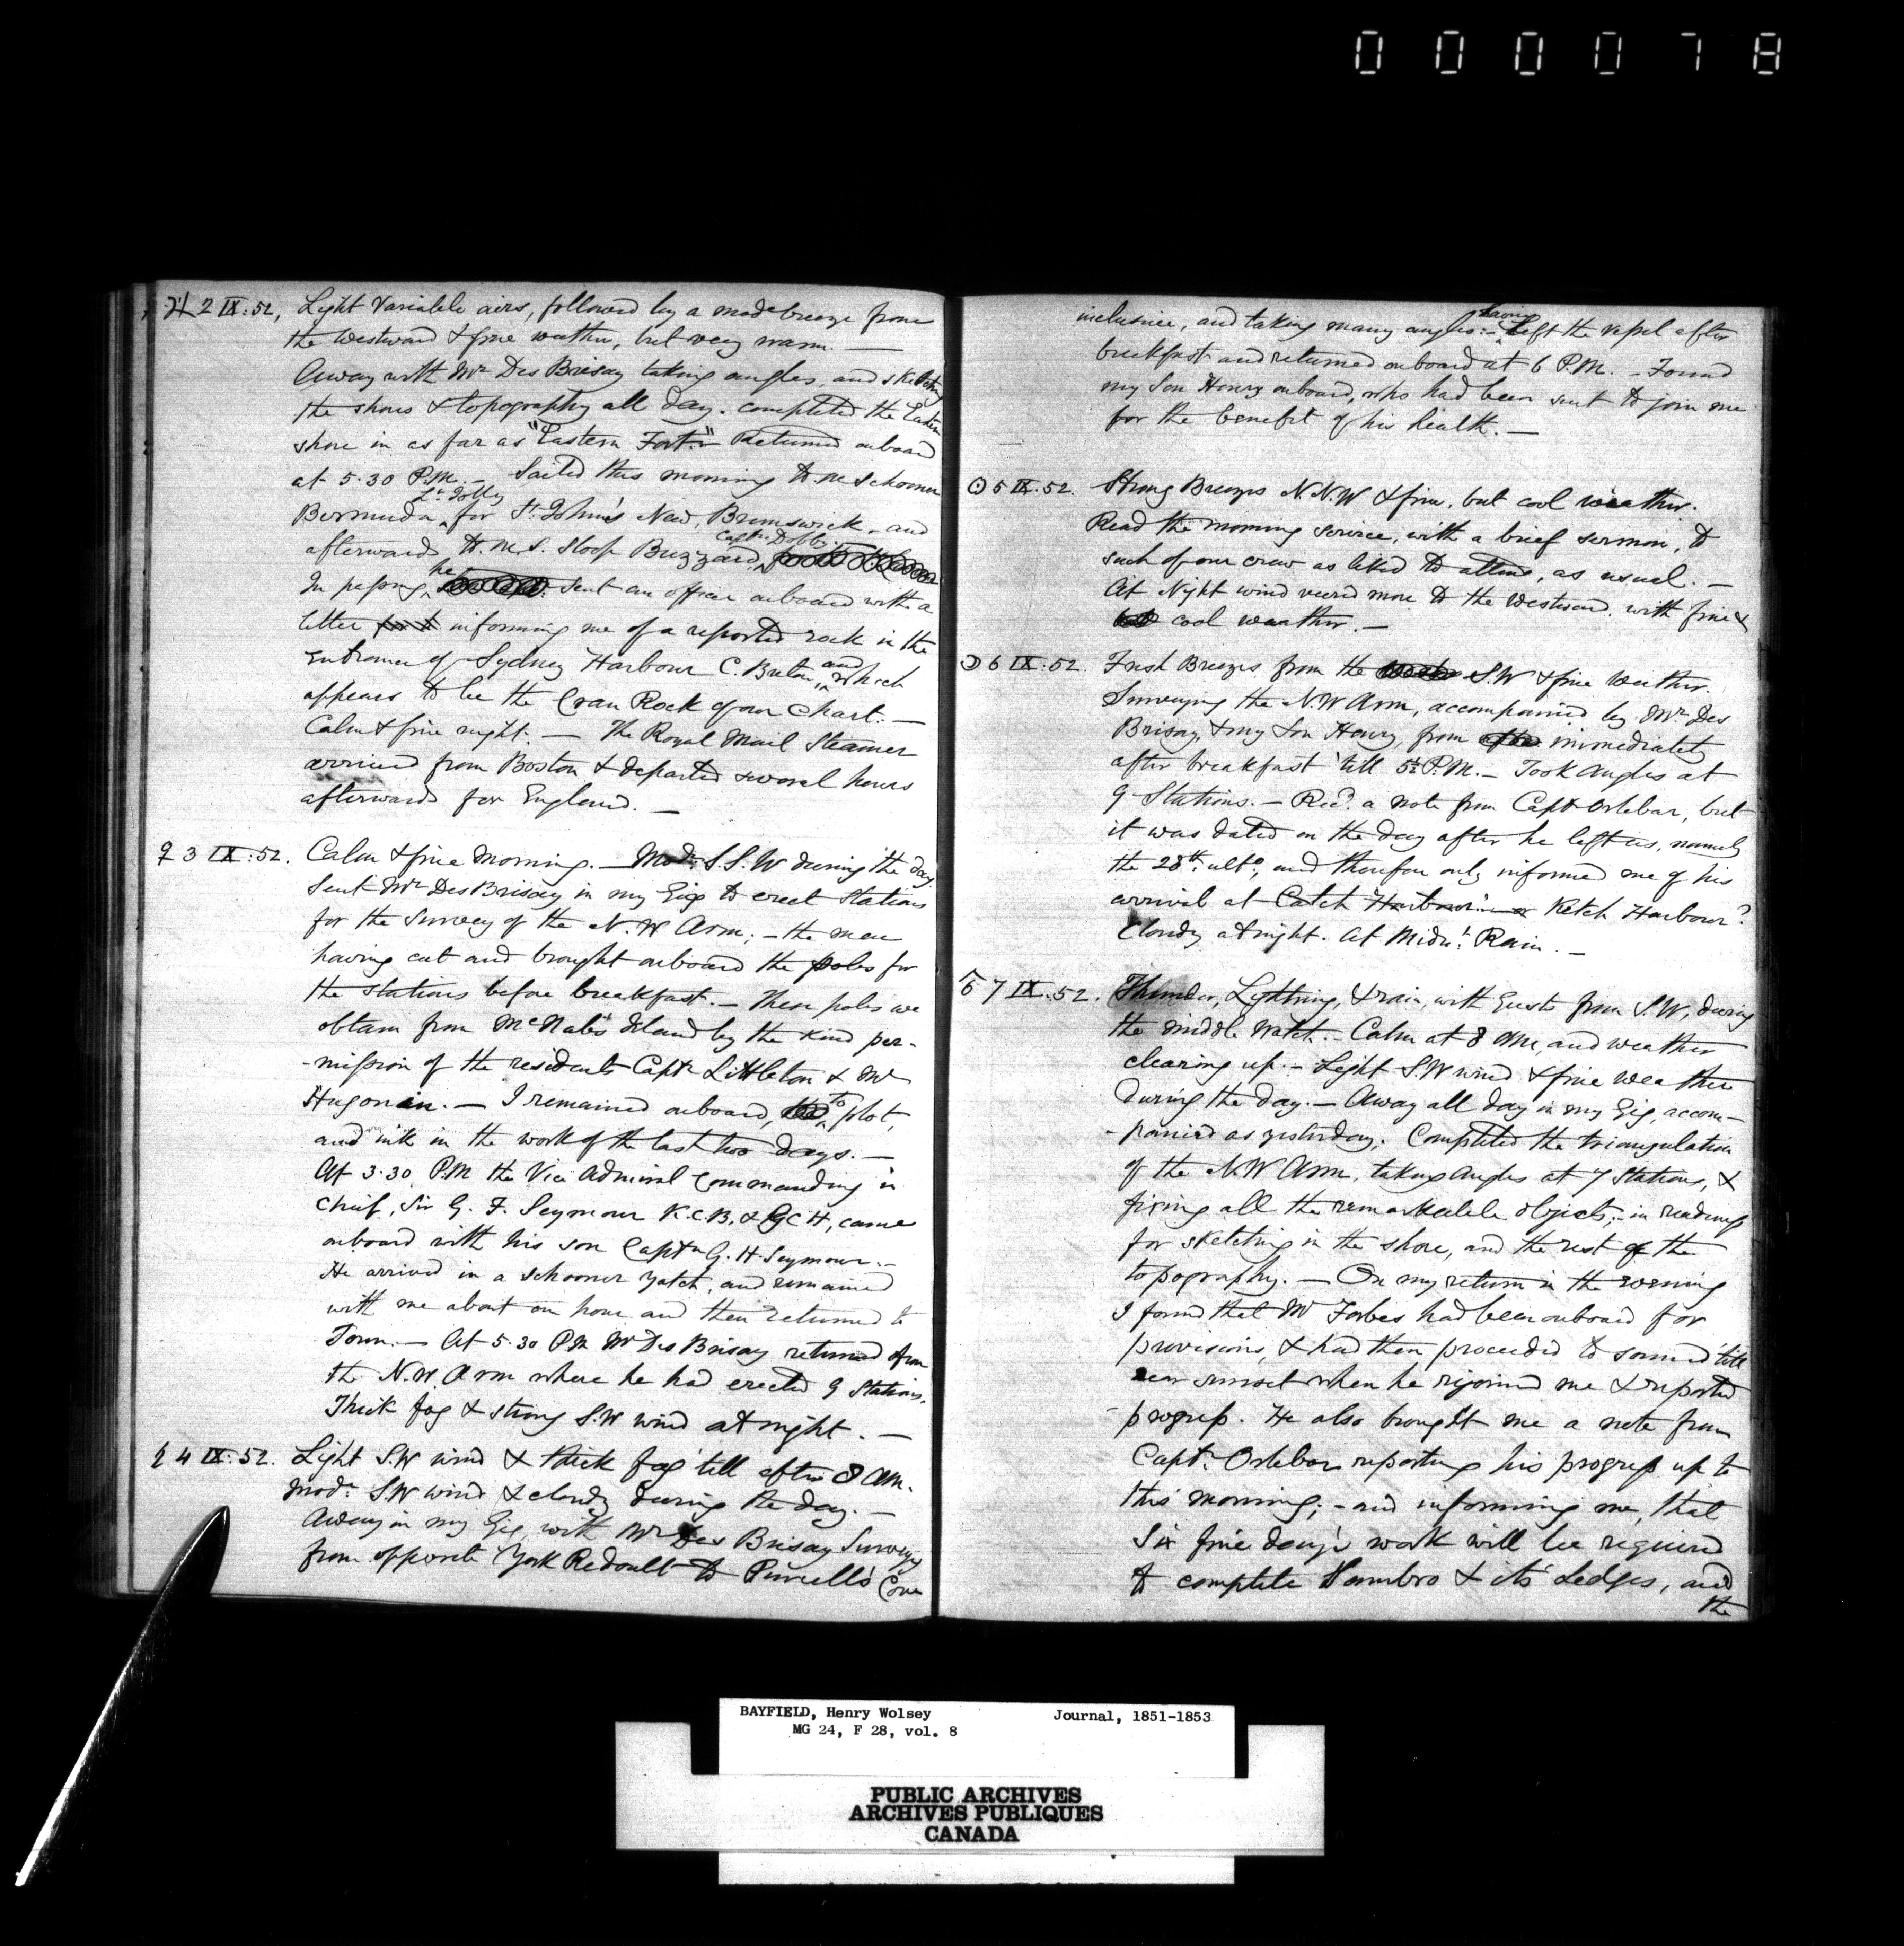 000078
♃ 2 IX : 52, Light Variable airs, followed by a mode breeze from
the Westward & fine weather, but very warm. —
Away with Mr Des Brisay taking angles, and sketching
the shores & topography all day. completed the Eastern
shore in as far as "Eastern Fort." — Returned onboard
at 5.30 P.M. — Sailed this morning H.M Schooner
Lt. Jolly
Bermuda, for St. John's New, Brunswick, and
Captn. Dobby.
afterwards H.M.S. Sloop Buzzard,
he
In passing, sent an officer onboard with a
letter informing me of a reported rock in the
and
Entrance of Sydney Harbour C. Breton, which
appears to be the Cran Rock of our Chart. —
Calm & fine night. — The Royal Mail Steamer
arrived from Boston & departed several hours
afterwards for England. —
♀ 3 IX : 52. Calm & fine Morning. — Modr. S.S.W during the day.
Sent Mr Des Brisay in my Gig to erect Stations
for the Survey of the N.W Arm; — the men
having cut and brought onboard the poles for
the stations before breakfast. — These poles we
obtain from McNab's Island by the kind per-
-mission of the residents Captn Littleton & Mr
Hugonin. — I remained onboard, to plot,
and ink in the work of the last two days. —
At 3.30, P.M the Vice Admiral Commanding in
Chief, Sir G. F. Seymour K.C.B. & GCH, came
onboard with his son Captn G. H. Seymour. —
He arrived in a schooner yatch, and remained
with me about an hour and then returned to
Town. — At 5.30 P.M Mr Des Brisay returned from
the N.W. Arm where he had erected 9 Stations.
Thick fog & strong S.W wind at night. —
♄ 4 IX : 52. Light S.W wind & thick fog till after 8 AM.
Modr. S.W wind & cloudy during the day. —
Away in my Gig, with Mr Des Brisay Surveying
from opposite York Redoubt to Purcell's Cove
inclusive, and taking many angles: — having Left the vessel after
breakfast and returned onboard at 6 P.M. — Found
my Son Henry onboard, who had been sent to join me
for the benefit of his health. —
☉ 5 IX : 52. Strong Breezes N.N.W & fine, but cool weather.
Read the morning service, with a brief sermon, to
such of our crew as liked to attend, as usual. —
At Night wind veered more to the Westward. with fine &
cool weather. —
☽ 6 IX : 52. Fresh Breezes from the S.W & fine Weather.
Surveying the N.W Arm, accompanied by Mr Des
Brisay, & my Son Henry, from immediately
after breakfast 'till 5½ P.M. — Took Angles at
9 Stations. — Recd. a note from Captn Orlebar, but
it was dated on the day after he left us, namely
the 28th. ulto., and therefore only informed me of his
arrival at Catch Harbour or Ketch Harbour?
Cloudy at night. At Midnt. Rain. —
♂ 7 IX : 52. Thunder, Lightning, & rain, with Gusts from S.W, during
the middle Watch. — Calm at 8 AM, and weather
clearing up. — Light S.W wind & fine weather
during the day. — Away all day in my Gig, accom-
-panied as yesterday. Completed the triangulation
of the N.W Arm, taking Angles at 7 Stations, &
fixing all the remarkable objects; — in readiness
for sketching in the shore, and the rest of the
topography. — On my return in the evening
I found that Mr Forbes had been onboard for
provisions, & had then proceeded to sound till
near sunset when he rejoined me & reported
progress. He also brought me a note from
Captn. Orlebar reporting his progress up to
this morning; — and informing me, that
Six fine day's work will be required
to complete Sambro & its' Ledges, and
the
BAYFIELD, Henry Wolsey Journal, 1851-1853
MG 24, F 28, vol. 8
PUBLIC ARCHIVES
ARCHIVES PUBLIQUES
CANADA